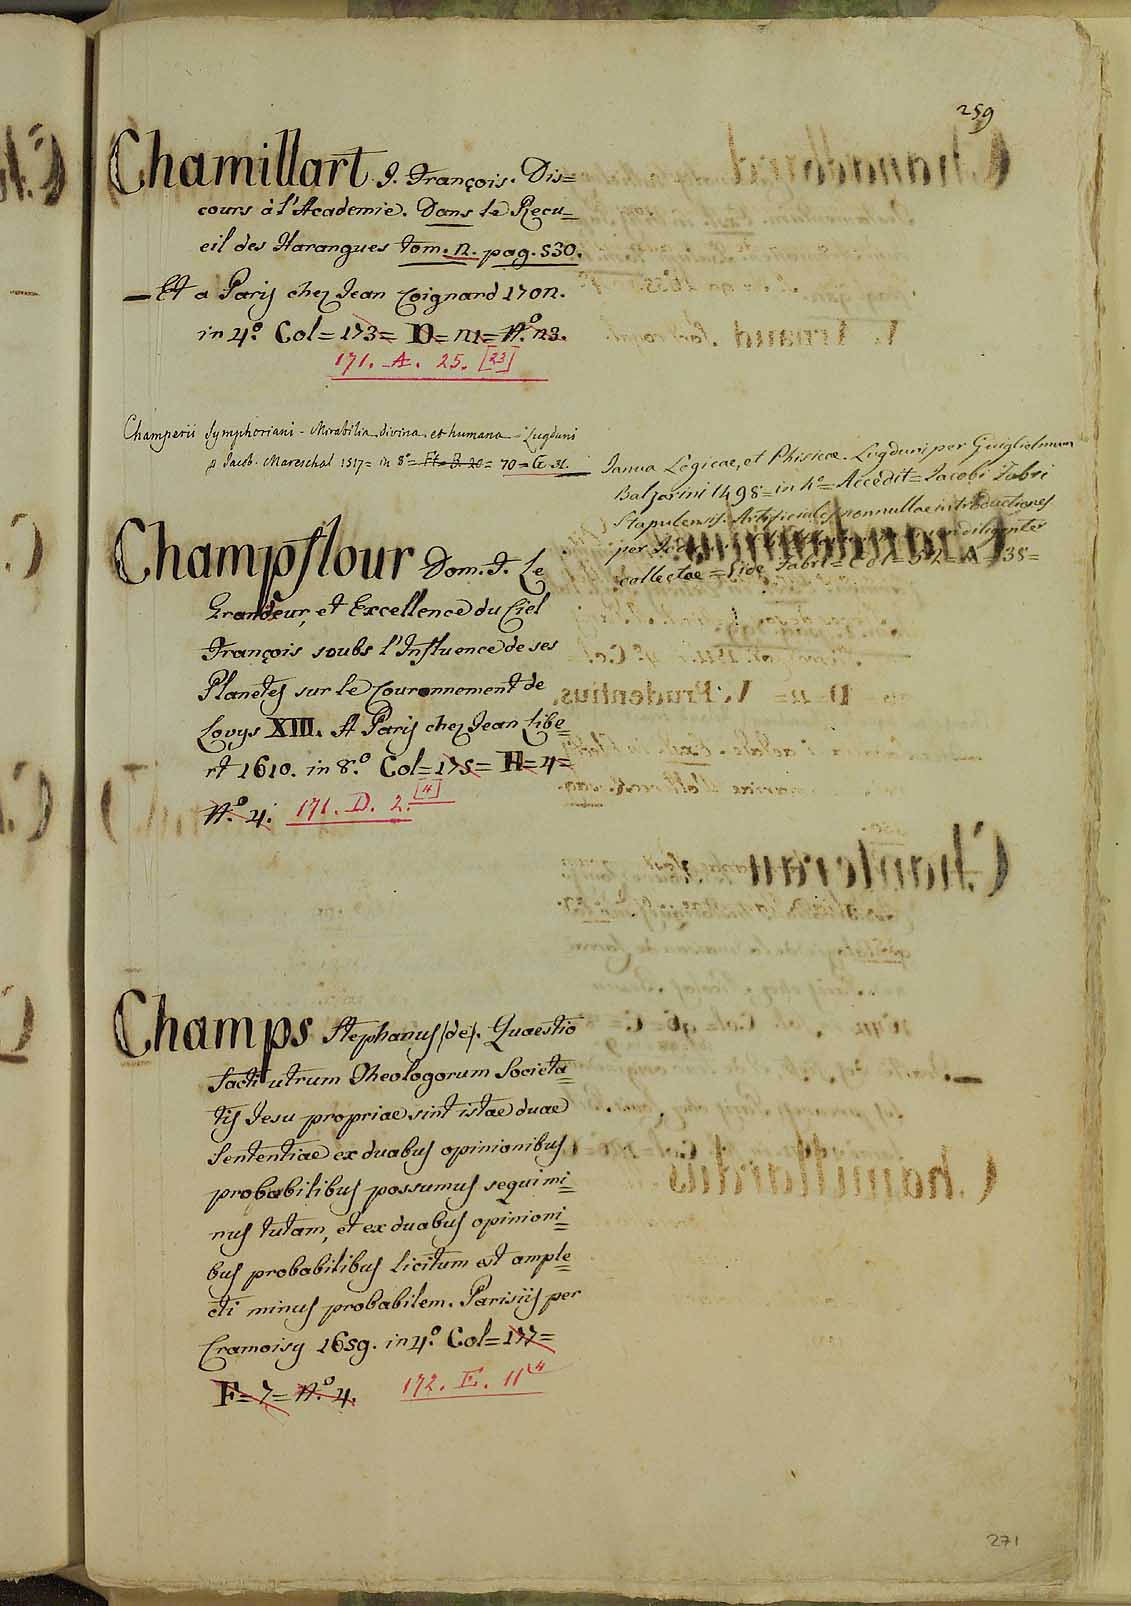 259
Chamillart J. François. Dis=
cours à l'Academie. Dans le Recu=
eil des Harangues tom. 2. pag. 530.
— Et a Paris chez Jean Coignard 1702.
in 4.º Col= 173= D= 21= N.º 23.
171. A. 25. [23]
Champerii Symphoriani - Mirabilia divina et humana - Lugduni
p Jacob. Mareschal 1517= in 8º= 70= G. 31.
Janua Logicae, et Phisicae. Lugduni per Guiglielmum
Balzarini 1498= in 4º= Accedit= Jacobi Fabri
Stapulensis. Artificiales nonnullae introductiones
per diligenter
collectae= Vide Fabri= Col= 38=
Champflour Dom. J. Le
Grandeur, et Excellence du Ciel
François soubs l'Influence de ses
Planetes sur le Couronnement de
Lovys XIII. A Paris chez Jean Libe=
rt 1610. in 8.º Col= 175= H= 4=
N.º 4. 171. D. 2. [4]
Champs Stephanus (de). Quaestio
facti utrum Theologorum Societa=
tis Jesu propriae sint istae duae
Sententiae ex duabus opinionibus
probabilibus possumus sequi mi=
nus tutam, et ex duabus opinioni=
bus probabilibus licitum est ample=
cti minus probabilem. Parisiis per
Cramoisy 1659. in 4.º Col= 177=
F= 7= N.º 4. 172. E. 11 4
271